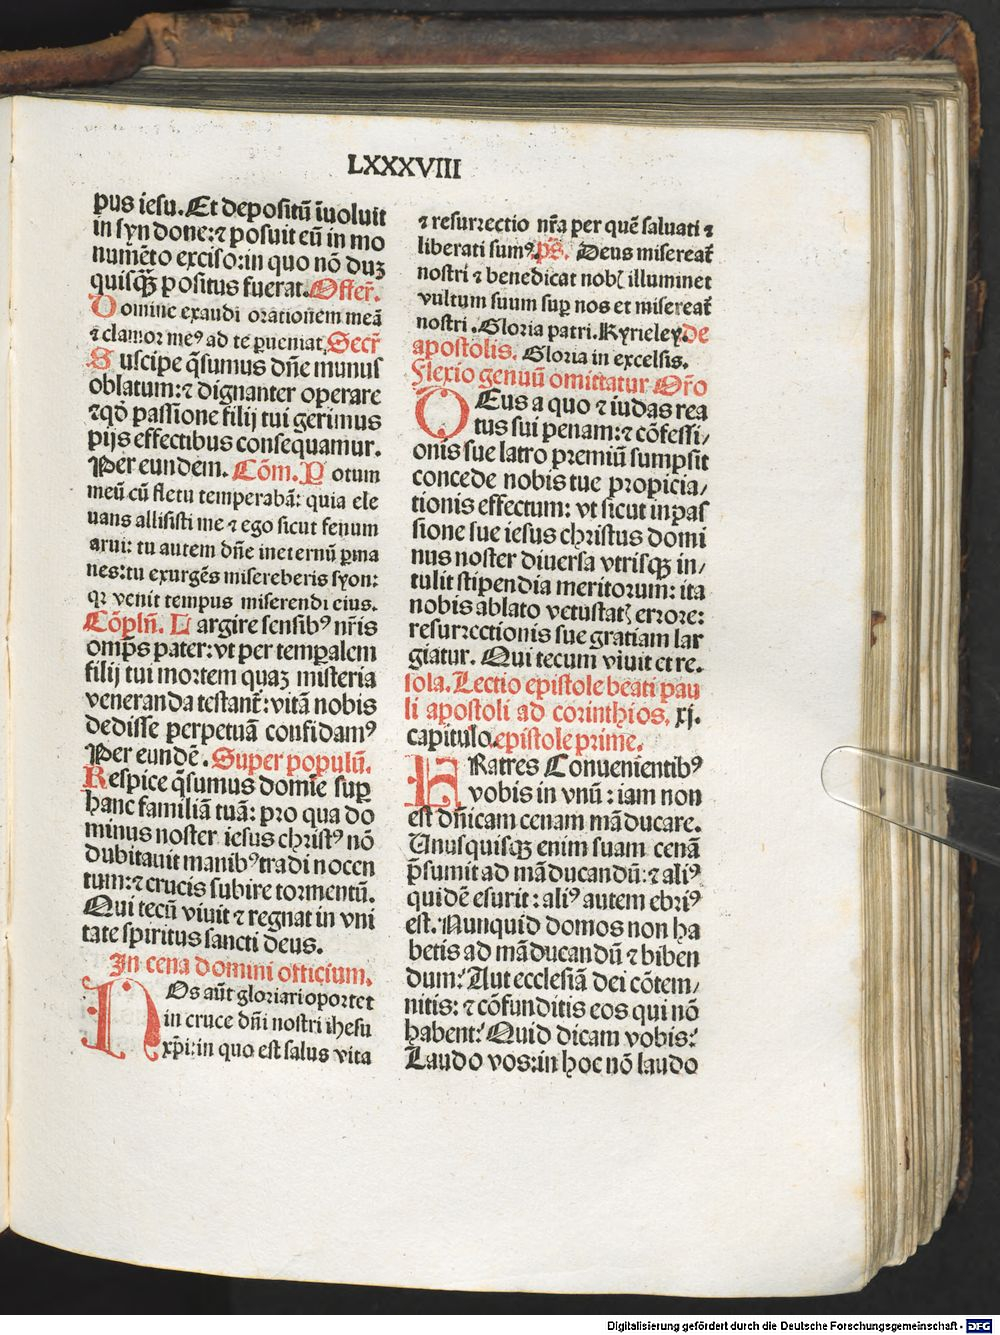 LXXXVIII
pus iesu. Et depositū īuoluit
in syndone: ⁊ posuit eū in mo
numēto exciso: in quo nō duꝫ
quisqꝫ positus fuerat. Offer̄.
Domine exaudi orationem meā
⁊ clamor meꝰ ad te ꝑueniat. Secr̄
Suscipe q̄sumus dn̄e munus
oblatum: ⁊ dignanter operare
⁊ qd̓ passione filij tui gerimus
pijs effectibus consequamur.
Per eundem. Cōm. Potum
meū cū fletu temperabā: quia ele
uans allisisti me ⁊ ego sicut fenum
arui: tu autem dn̄e ineternū ꝑma
nes: tu exurgēs misereberis syon:
qꝛ venit tempus miserendi eius.
Cōpln̄. Largire sensibꝰ nr̄is
omp̄s pater: vt per temꝑalem
filij tui mortem quaꝫ misteria
veneranda testant̄: vitā nobis
dedisse perpetuā confidamꝰ
Per eundē. Super populū.
Respice q̄sumus domīe suꝑ
hanc familiā tuā: pro qua do
minus noster iesus christꝰ nō
dubitauit manibꝰ tradi nocen
tum: ⁊ crucis subire tormentū.
Qui tecū viuit ⁊ regnat in vni
tate spiritus sancti deus.
In cena domini officium.
NOs aūt gloriari oportet
in cruce dn̄i nostri ihesu
xp̄i: in quo est salus vita
⁊ resurrectio nr̄a per quē saluati ⁊
liberati sumꝰ. ps̄. Deus misereat̄
nostri ⁊ benedicat nobꝭ illuminet
vultum suum suꝑ nos et misereat̄
nostri. Gloria patri. Kyrieley. de
apostolis. Gloria in excelsis.
Flexio genuū omittatur Or̄o
DEus a quo ⁊ iudas rea
tus sui penam: ⁊ cōfessi/
onis sue latro premiū sumpsit
concede nobis tue propicia/
tionis effectum: vt sicut in pas
sione sue iesus christus domi
nus noster diuersa vtrisqꝫ in/
tulit stipendia meritorum: ita
nobis ablato vetustatꝭ errore:
resurrectionis sue gratiam lar
giatur. Qui tecum viuit et re.
sola. Lectio epistole beati pau
li apostoli ad corinthios. xj.
capitulo. epistole prime.
FRatres Conuenientibꝰ
vobis in vnū: iam non
est dn̄icam cenam māducare.
Unusquisqꝫ enim suam cenā
p̄sumit ad māducandū: ⁊ aliꝰ
quidē esurit: aliꝰ autem ebriꝰ
est. Nunquid domos non ha
betis ad māducandū ⁊ biben
dum? Aut ecclesiā dei cōtem/
nitis: ⁊ cōfunditis eos qui nō
habent? Quid dicam vobis?
Laudo vos: in hoc nō laudo
Digitalisierung gefördert durch die Deutsche Forschungsgemeinschaft - DFG